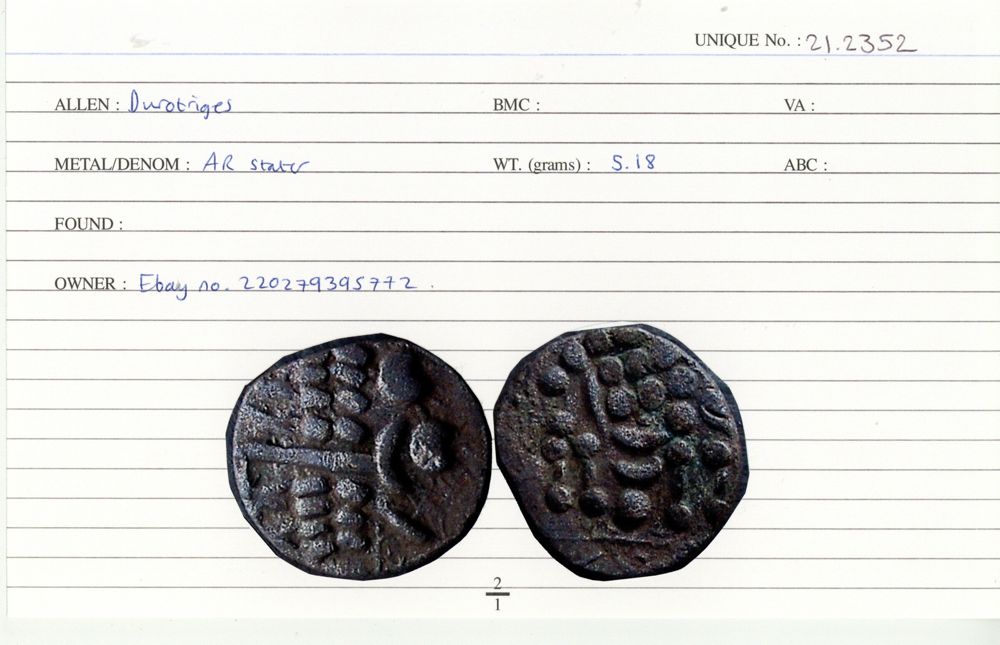 UNIQUE No. : 21.2352
ALLEN : Durotriges BMC : VA :
METAL/DENOM : AR stater WT. (grams) : 5.18 ABC :
FOUND :
OWNER : Ebay no. 220279395772.
2
1